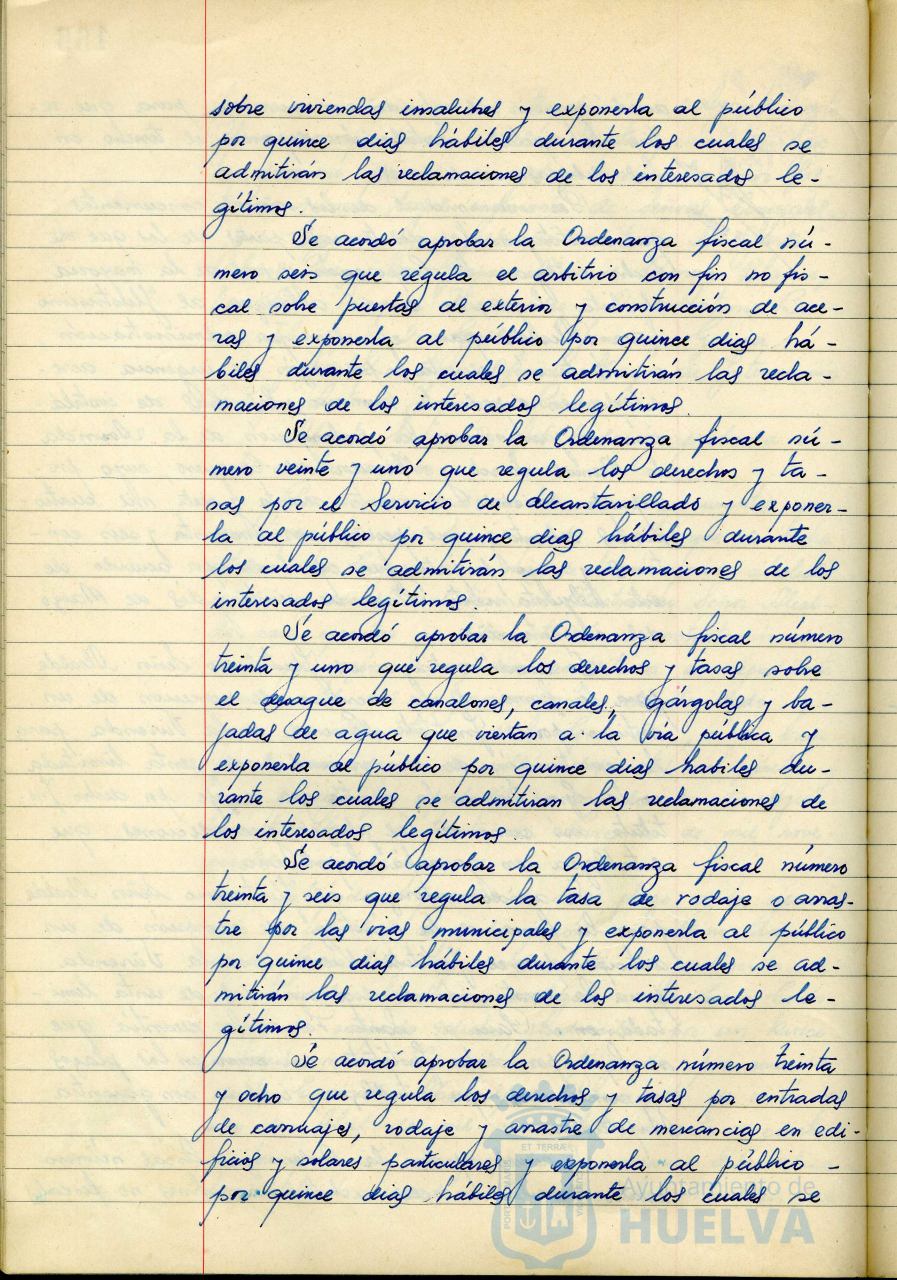 sobre viviendas insalubres y exponerla al público
por quince dias hábiles durante los cuales se
admitirán las reclamaciones de los interesados le-
gítimos.
Se acordó aprobar la Ordenanza fiscal nú-
mero seis que regula el arbitrio con fin no fis-
cal sobre puertas al exterior y construcción de ace-
ras y exponerla al público por quince dias há-
biles durante los cuales se admitirán las recla-
maciones de los interesados legítimos.
Se acordó aprobar la Ordenanza fiscal nú-
mero veinte y uno que regula los derechos y ta-
sas por el Servicio de Alcantarillado y exponer-
la al público por quince dias hábiles durante
los cuales se admitirán las reclamaciones de los
interesados legítimos.
Se acordó aprobar la Ordenanza fiscal número
treinta y uno que regula los derechos y tasas sobre
el desague de canalones, canales, gárgolas y ba-
jadas de agua que viertan a la via pública y
exponerla al público por quince dias habiles du-
rante los cuales se admitiran las reclamaciones de
los interesados legítimos.
Se acordó aprobar la Ordenanza fiscal número
treinta y seis que regula la tasa de rodaje o arras-
tre por las vias municipales y exponerla al público
por quince dias hábiles durante los cuales se ad-
mitirán las reclamaciones de los interesados le-
gítimos.
Se acordó aprobar la Ordenanza número treinta
y ocho que regula los derechos y tasas por entradas
de carruajes, rodaje y arrastre de mercancias en edi-
ficios y solares particulares y exponerla al público -
por quince dias hábiles durante los cuales se
ET TERRÆ
Ayuntamiento de
HUELVA